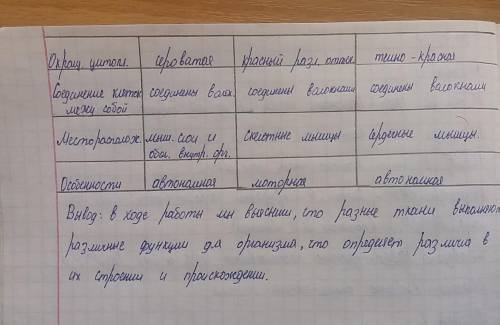 Окраш. цитопл. сероватая красный разл. оттенк. темно-красная
Соединение клеток соединены волок. соединены волокнами соединены волокнами
между собой
Месторасполож. мыш. слои и скелетные мышцы сердечные мышцы.
обол. внутр. орг.
Особенности автономная моторная автономная
Вывод: в ходе работы мы выяснили, что разные ткани выполняют
различные функции для организма, что определяет различия в
их строении и происхождении.